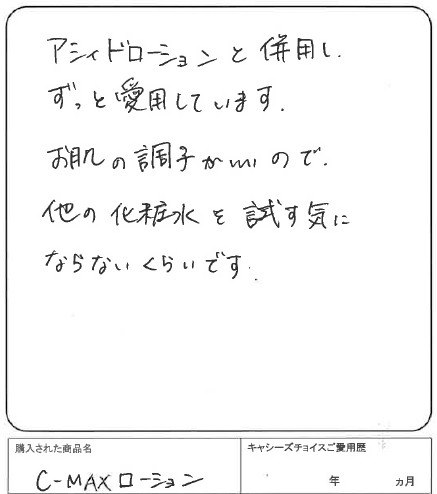 アシィドローションと併用し.
ずっと愛用しています.
お肌の調子がいいので.
他の化粧水を試す気に
ならないくらいです.
購入された商品名
キャシーズチョイスご愛用歴
C-MAXローション
年 ヵ月